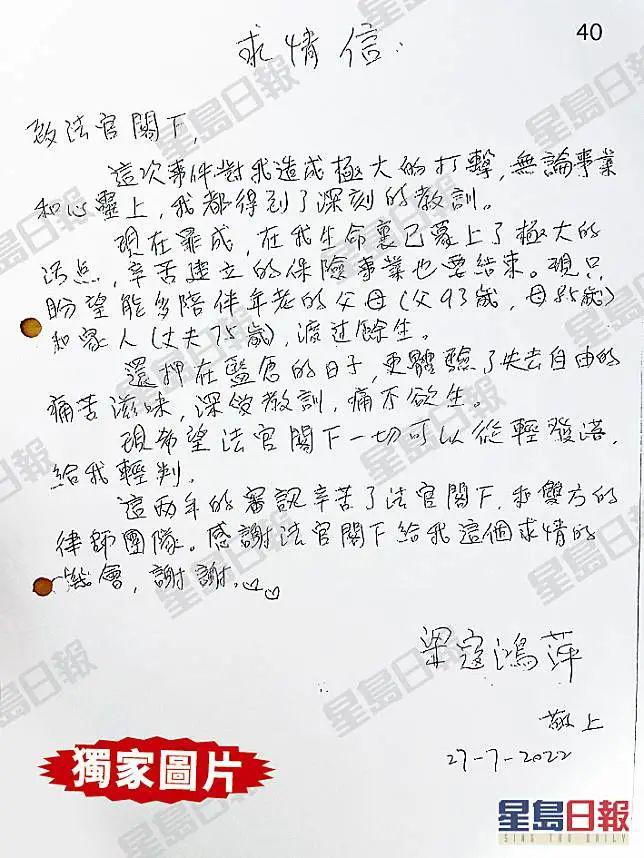 40
求情信:
致法官閣下,
這次事件對我造成極大的打擊,無論事業
和心靈上,我都得到了深刻的教訓。
現在罪成,在我生命裏已蒙上了極大的
污点,辛苦建立的保險事業也要結束。現只
盼望能多陪伴年老的父母(父93歲,母85歲)
和家人(丈夫75歲),渡过餘生。
還押在監倉的日子,更體驗了失去自由的
痛苦滋味,深受教訓,痛不欲生。
現希望法官閣下一切可以從輕發落,
給我輕判.
這兩年的審訊辛苦了法官閣下,和雙方的
律師團隊。感謝法官閣下給我這個求情的
機會,謝謝.
梁寇鴻萍
敬上
27-7-2022
獨家圖片
星島日報
SING TAO DAILY